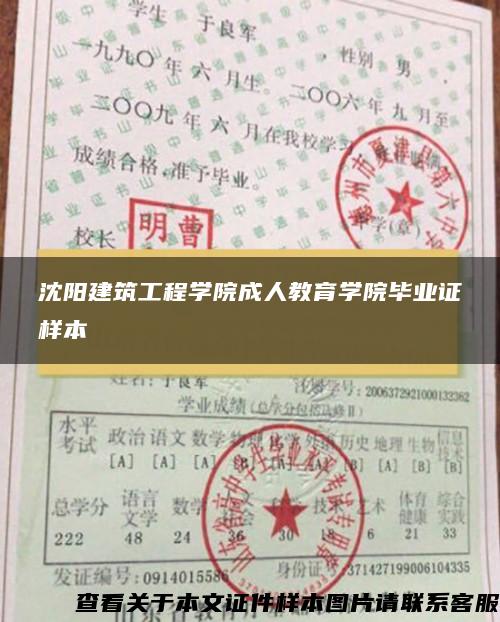 学生 于良军 ，性别 男 ．
一九九〇 年 六 月生。 二〇〇六 年 九 月至
二〇〇九 年 六 月在我校学习
成绩合格,准予毕业。
德州市夏津县第六中学
学(章)
校长
明曹
沈阳建筑工程学院成人教育学院毕业证
样本
姓名:于良军 注册学号: 2006372921000132362
学业成绩(总学分包括选修Ⅱ)
水平
考试
政治 语文 数学 物理 化学 外语 历史 地理 生物 信息
技术
[A] [A] [A] [B] [A] [B] [A] [B] [B]
总学分 语言
文学 数学 科学 技术 艺术 体育
健康 综合
实践
222 48 24 36 30 18 6 21 33
山东省高中学生毕业水平考试专用章
发证编号: 0914015586 身份证号: 371427199006104335
查看关于本文证件样本图片请联系客服